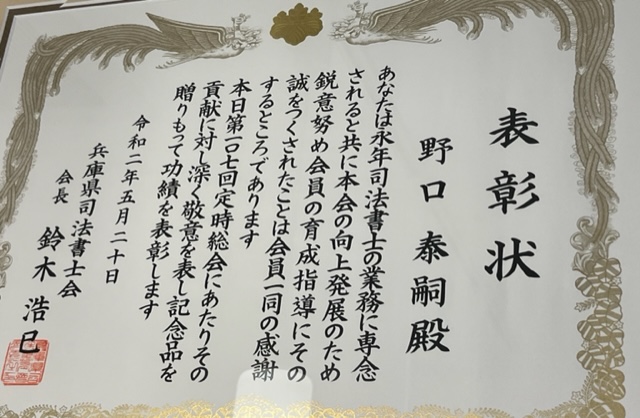 表彰状
野口泰嗣殿
あなたは永年司法書士の業務に専念
されると共に本会の向上発展のため
鋭意努め会員の育成指導にその
誠をつくされたことは会員一同の感謝
するところであります
本日第一〇七回定時総会にあたりその
貢献に対し深く敬意を表し記念品を
贈りもって功績を表彰します
令和二年五月二十日
兵庫県司法書士会
会長 鈴木浩巳